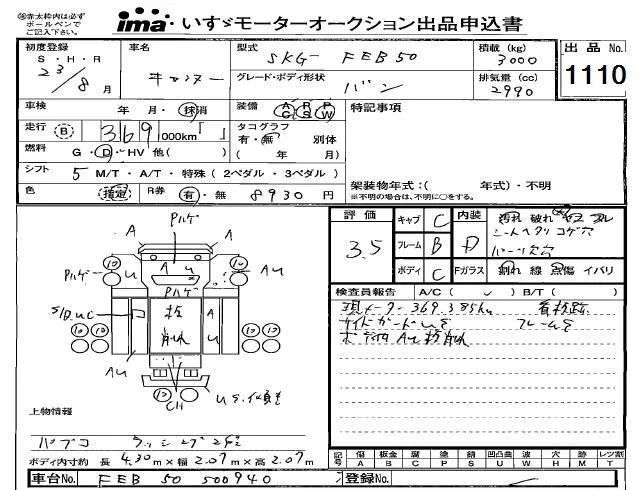 ※赤太枠内は必ず
ボールペンで
ご記入下さい。
ima いすゞモーターオークション出品申込書
初度登録 S・H・R 23年 8月
車名 キャンター
型式 SKG- FEB50
積載(kg) 3000
出品No. 1110
グレード・ボディ形状 バン
排気量(cc) 2990
車検 年 月・抹消
装備 A/C P/S P/W
特記事項
走行 B 369 000km「 」
タコグラフ 有・無 別体
( 年 月)
燃料 G・D・HV 他( )
シフト 5 M/T・A/T・特殊(2ペダル・3ペダル)
架装物年式:( 年式)・不明
※不明の場合は、不明に○をする。
色 指定 R券 有・無 8930円
評価 3.5
キャブ C
フレーム B
ボディ C
内装 D
Fガラス
汚れ 破れ ヤニ
シートヘタリ コゲ穴
パーツ欠穴
割れ 線 点傷 イバリ
検査員報告 A/C( ✓ ) B/T( )
現メーター369,385km 看板跡
サイドガードUE フレームE
ボディAU 板削れ
Pハゲ
A
A
Pハゲ
AU
A U
U
U
Pハゲ
S/D UC
板
削れ
A
U
AU
CH
上物情報
パブコ ラッシング2段
ボディ内寸約 長 4.30m×幅 2.07m×高 2.07m
車台No. FEB50 500940
登録No.
記号
傷 A
板金 B
腐 C
塗 P
錆 S
凹凸曲 U
波 W
穴 H
跡 M
レツ割 T